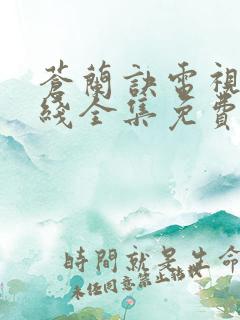 蒼蘭訣電視
綫全集免費
時間就是生命
未經同意禁止轉載